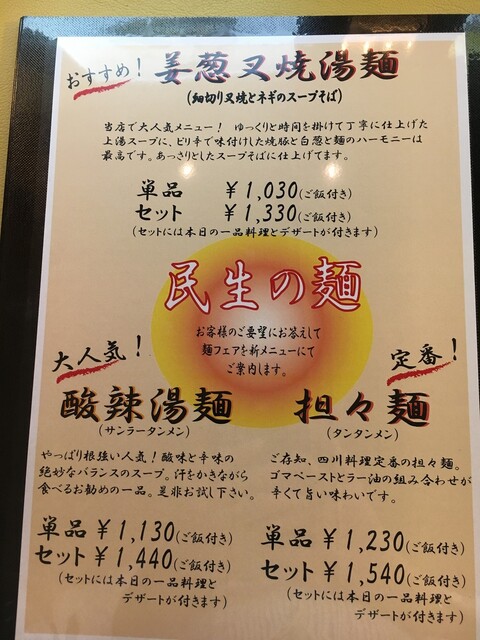 おすすめ!
姜葱叉焼湯麺
(細切り叉焼とネギのスープそば)
当店で大人気メニュー! ゆっくりと時間を掛けて丁寧に仕上げた
上湯スープに、ピリ辛で味付けした焼豚と白葱と麺のハーモニーは
最高です。あっさりとしたスープそばに仕上げてます。
単品 ¥1,030(ご飯付き)
セット ¥1,330(ご飯付き)
(セットには本日の一品料理とデザートが付きます)
民生の麺
お客様のご要望にお答えして
麺フェアを新メニューにて
ご案内します。
大人気!
酸辣湯麺
(サンラータンメン)
やっぱり根強い人気!酸味と辛味の
絶妙なバランスのスープ。汗をかきながら
食べるお勧めの一品。是非お試し下さい。
単品 ¥1,130(ご飯付き)
セット ¥1,440(ご飯付き)
(セットには本日の一品料理と
デザートが付きます)
定番!
担々麺
(タンタンメン)
ご存知、四川料理定番の担々麺。
ゴマペーストとラー油の組み合わせが
辛くて旨い味わいです。
単品 ¥1,230(ご飯付き)
セット ¥1,540(ご飯付き)
(セットには本日の一品料理と
デザートが付きます)